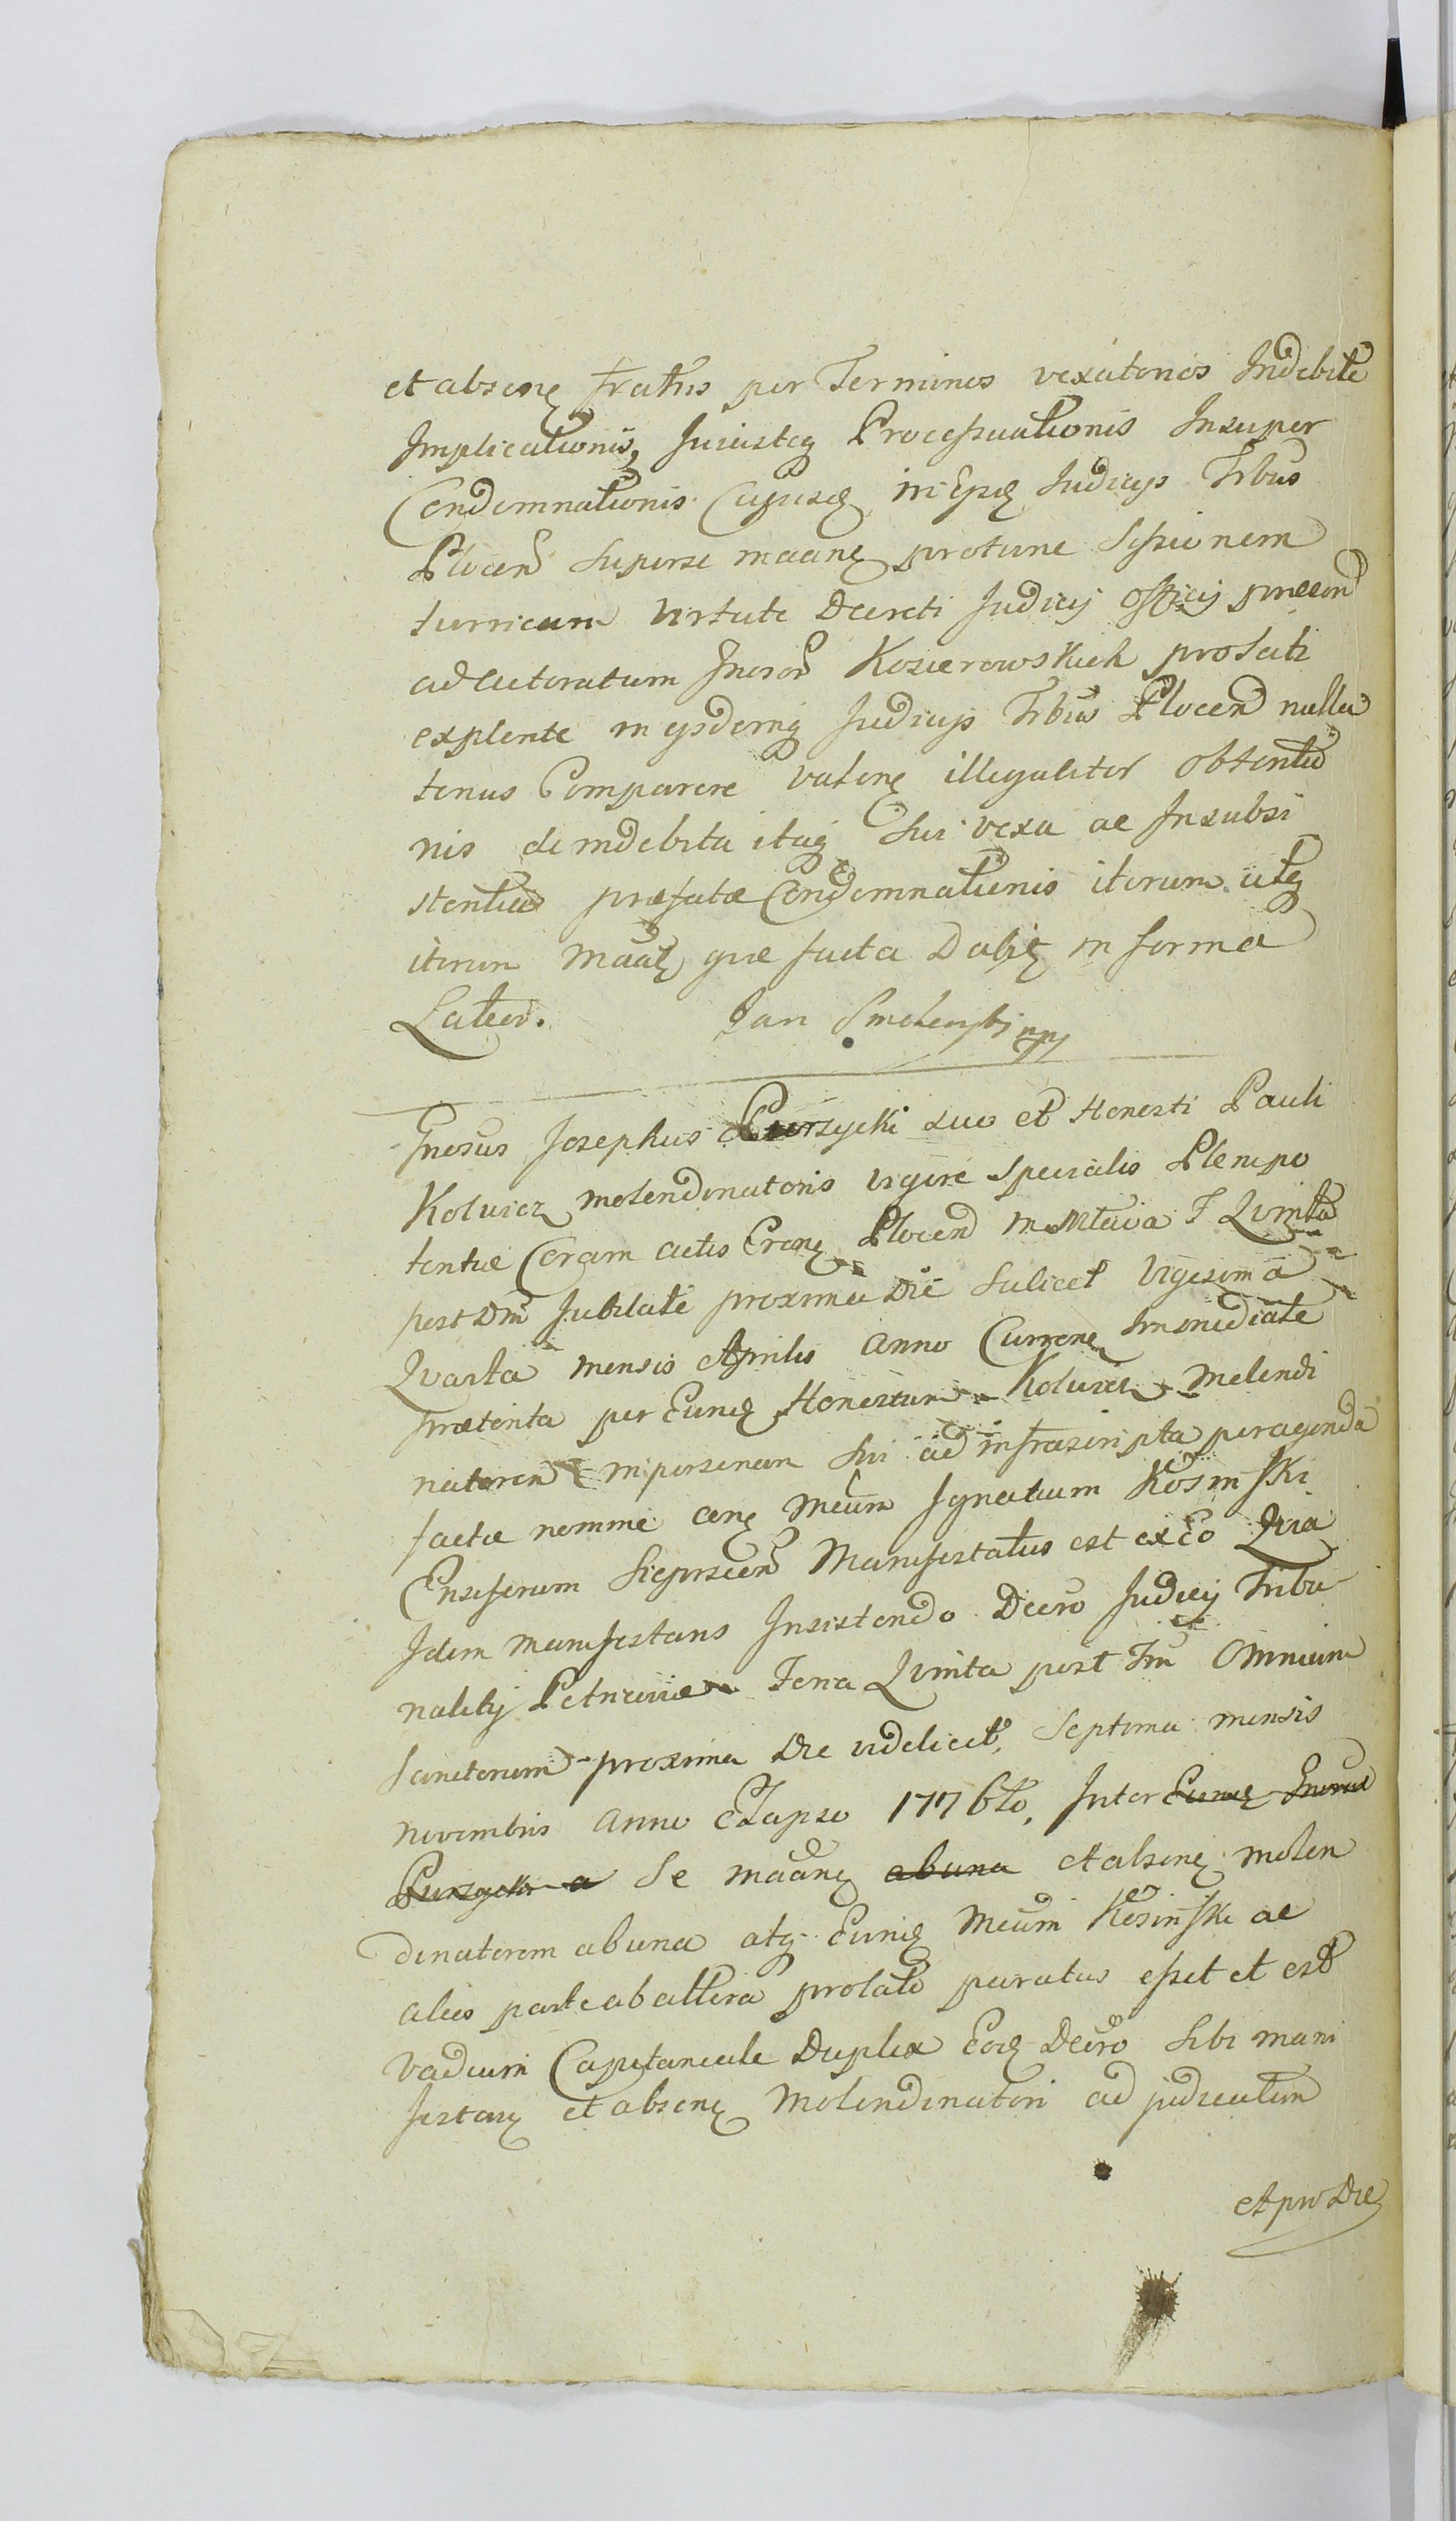 et absenę fratris per Terminos vexatorios Indebite
Implicationis, Iuristeq Processuationis Insuper
Condemnationis Cujusq in Ipsę Iudicys Trbus
Plocen superse maanę protunc Sessionem
turricam virtute Decreti Judicij Officij
ad Actoratum Gnoror Kozierowskich prolati
explente in ysdemq Judicys Trbus Plocen nulla
tenus Comparere valenę illegaliter obtentio
nis de indebita itaq Sui vexa ac Insubsi
stentia praefatae Condemnationis iterum atq
iterum Maaę que facta Dabię in forma
Latior. Jan Smoleński mpp
Gnosus Josephus Pierzycki suo et Honesti Pauli
Koluicz molendinatoris vigore specialis Plenipo
tentiae Coram actis Crenę Plocen in Mlava F Qvinta
post Dm Jubilate proxima Die scilicet Vigesima
Qvarta mensis Aprilis anno Currenę Immediate
praetenta per Eunę Honestum Koluicz Molendi
natorem in personam sui ad infrascripta peragenda
factae nomine conę Mcum Ignatium Kosinski
Ensiferum Sieprscen Manifestatus est ex Eo Qvia
Idem manifestans Insistendo Decro Judicij Tribu
nalitij Petricovien Feria Qvinta post Fm Omnium
Sanctorum proxima Die videlicet Septima mensis
novembris Anno Elapso 1776to, Inter Eunę Gnorum
Pierzycki a Se maanę ab una et absenę molen
dinatorem ab una atq Eunę Mcum Kosinski ac
alios parte ab altera prolato paratus esset et est
vadium Capitaneale Duplex Eoę Decro sibi mani
festanę et absenę Molendinatori adjudicatum
et pro Die